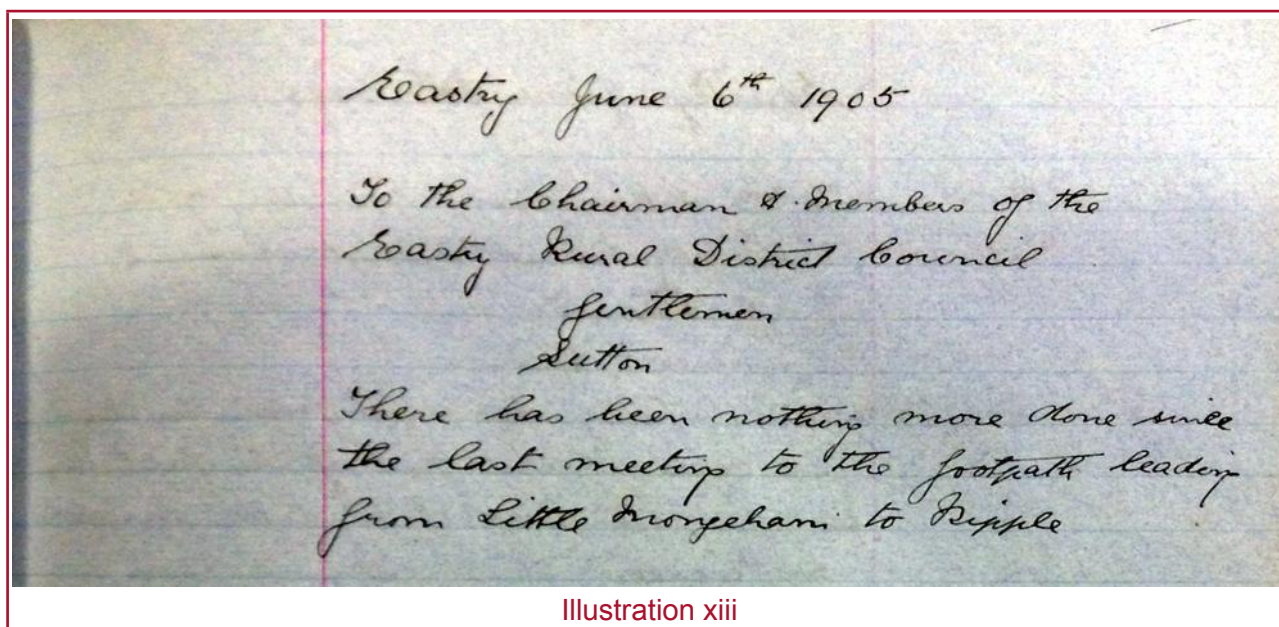 Eastry June 6th 1905
To the Chairman & Members of the
Eastry Rural District Council
Gentlemen
Sutton
There has been nothing more done since
the last meeting to the footpath leading
from Little Mongeham to Ripple
Illustration xiii